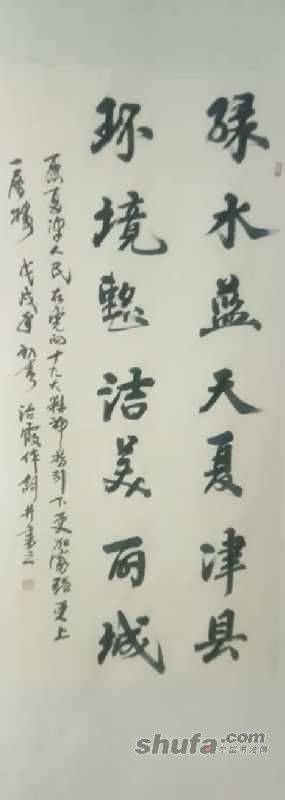 绿水蓝天夏津县
环境整洁美丽城
愿夏津人民在党的十九大精神指引下更加富强更上
一层楼 戊戌年初春 治霞作诗并书之
shufa.com
中国书法网